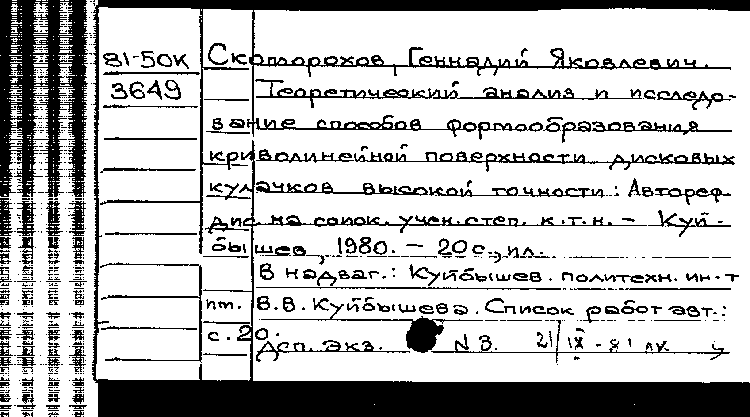 81-50К Скоморохов, Геннадий Яковлевич.
3649 Теоретический анализ и исследо-
вание способов формообразования
криволинейной поверхности дисковых
кулачков высокой точности: Автореф.
дис на соиск. учен. степ. к.т.н. - Куй-
бышев, 1980. - 20 с., ил.
В надзаг.: Куйбышев. политехн. ин-т
им. В.В. Куйбышева. Список работ авт.:
с. 20.
Деп. экз. N 3. 21/IX - 81